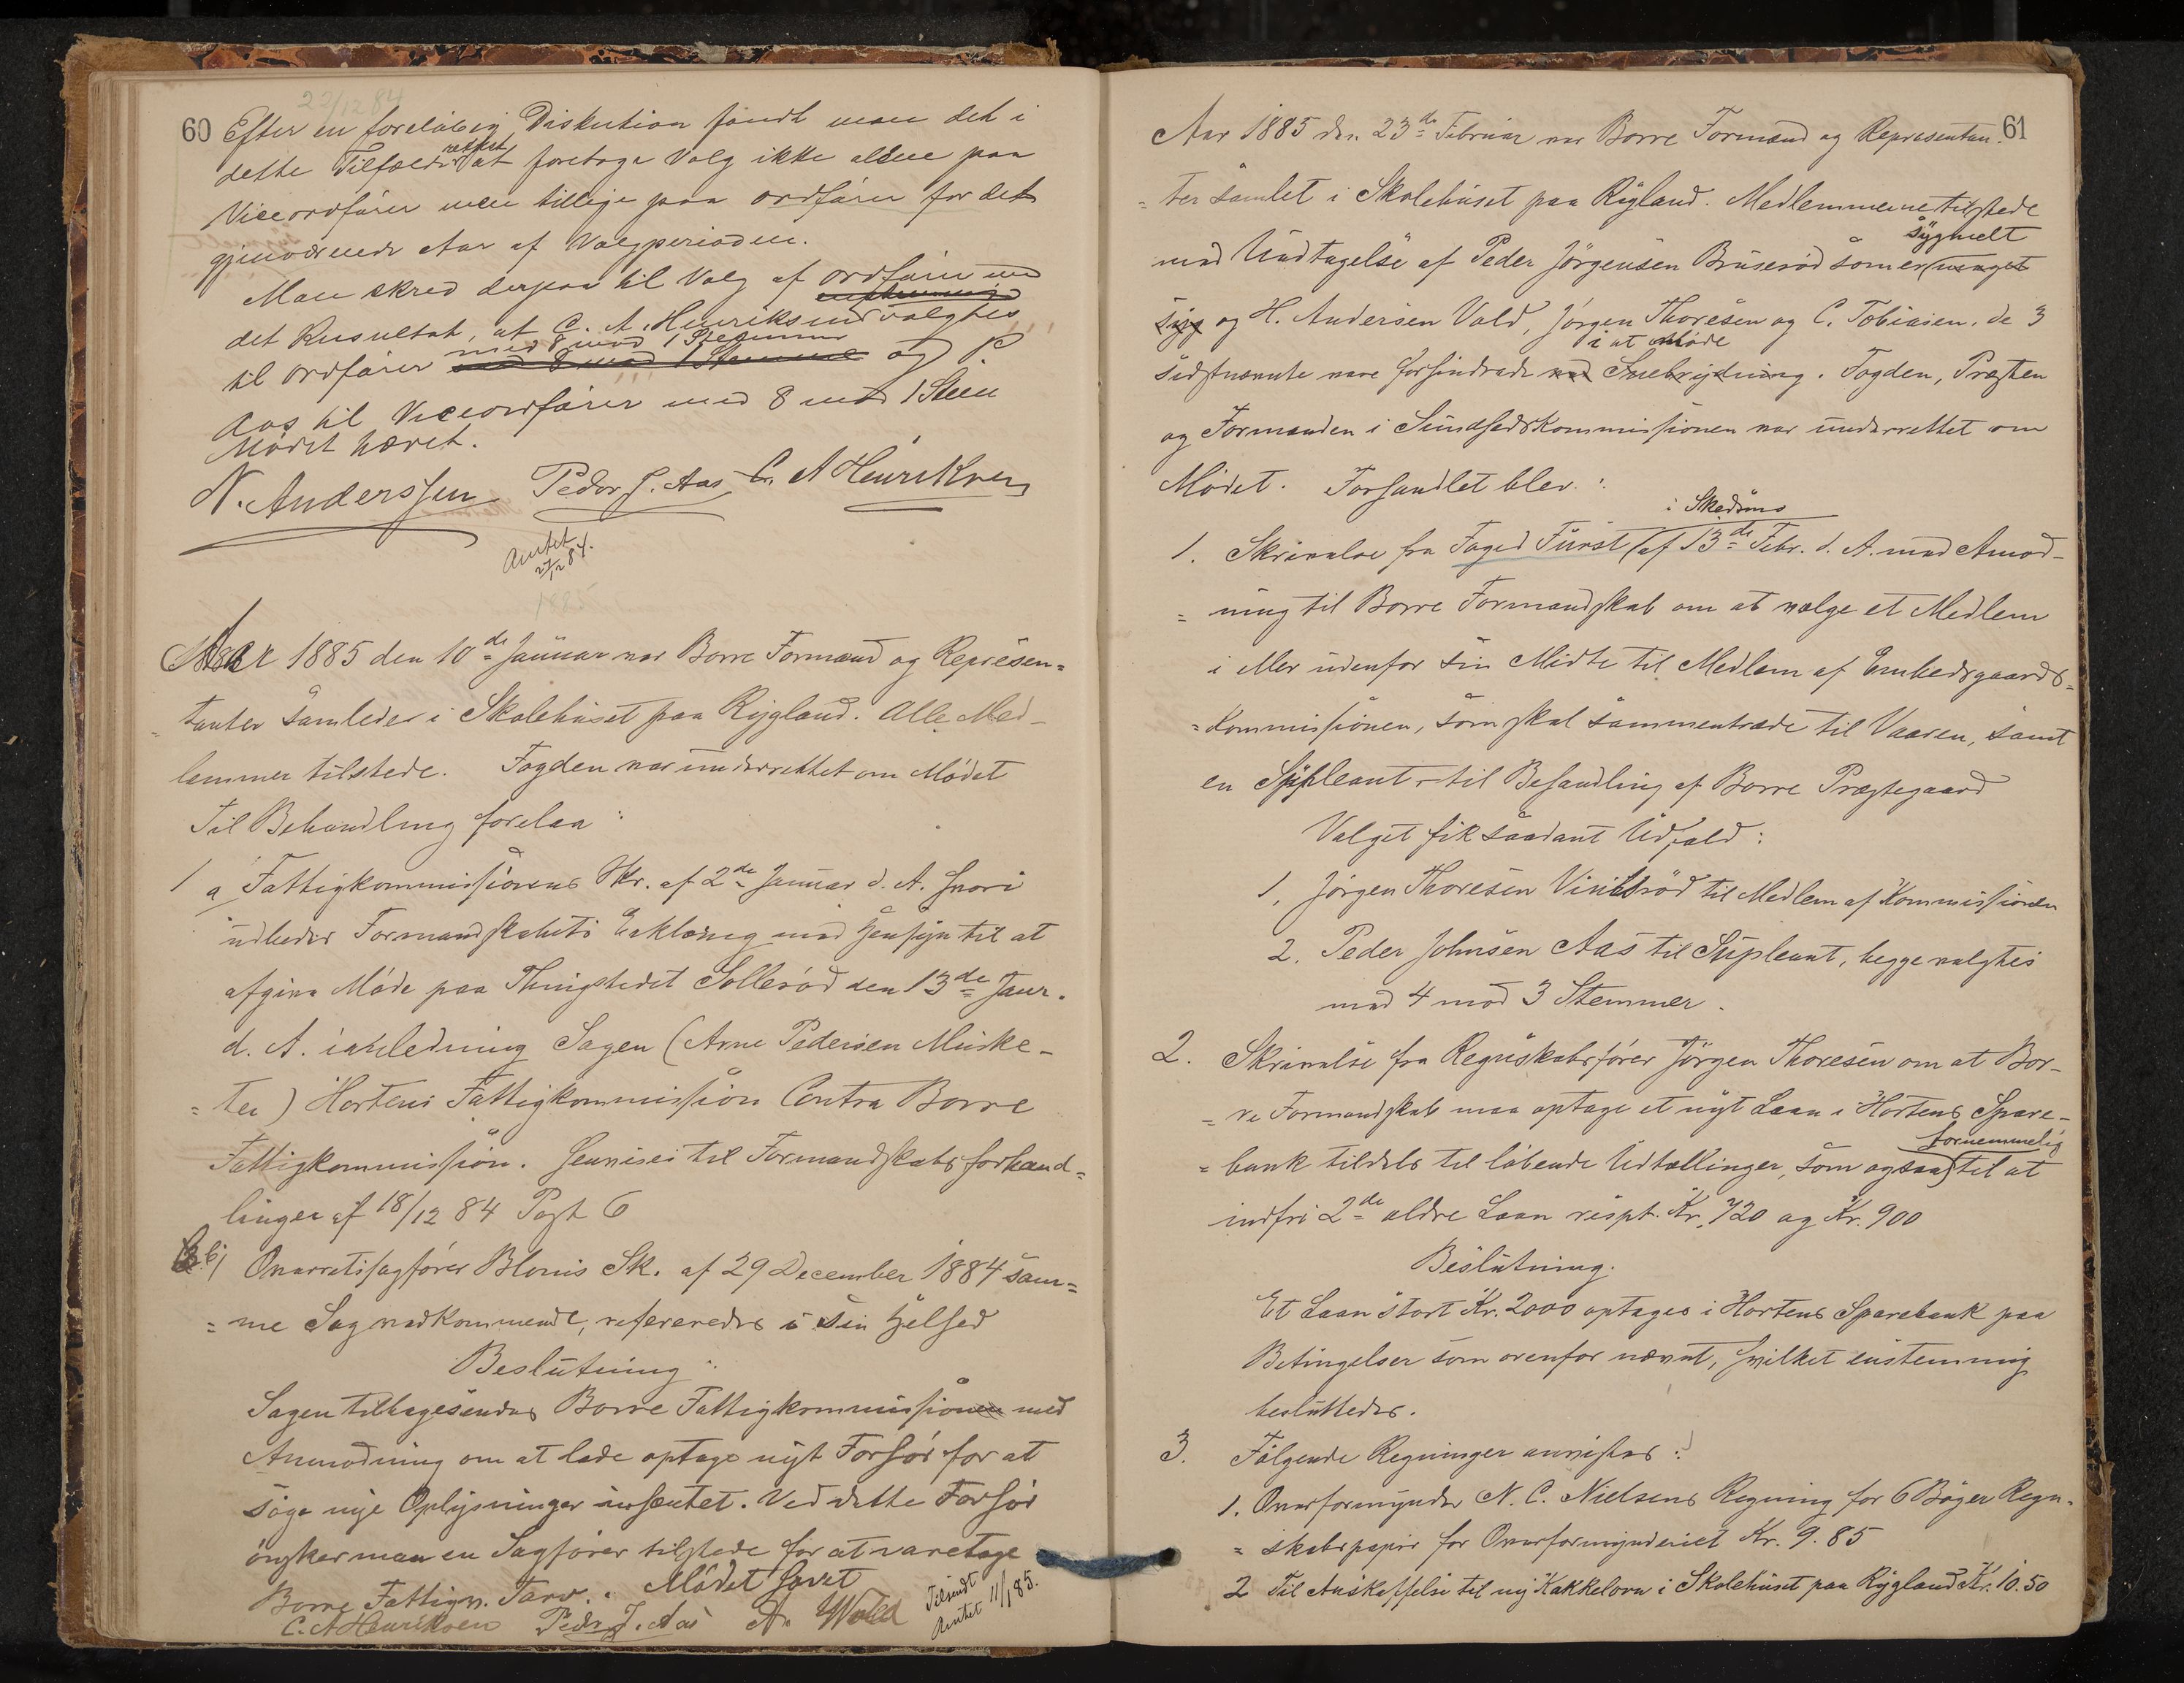 22/12 84
60 Efter en foreløbig Diskution fandt man det i
dette Tilfælde rettest at foretage Valg ikke allene paa
Viceordfører men tillige paa ordfører for det
gjenværende Aar af Valgperioden.
Man skred derpaa til Valg af ordfører med
det Resultat, at C. A. Henriksen valgtes
til ordfører med 8 mod 1 Stemme og P.
Aas til Viceordfører med 8 mod 1 Stem
Mødet hævet.
N. Anderssen Peder J. Aas C. A Henriksen
Amtet
27/12 84.
1885
Aar 1885 den 10de Januar var Borre Formænd og Repræsen=
=tanter samlede i Skolehuset paa Rygland. Alle Med-
lemmer tilstede. Fogden var underrettet om Mødet
Til Behandling forelaa:
1 a Fattigkommissionens Skr. af 2de Januar d. A. hvori
udbedes Formandskabets Erklæring med Hensyn til at
afgive Møde paa Thingstedet Sollerød den 13de Janr.
d. A. i anledning Sagen (Arne Pedersen Muske-
=ter) Hortens Fattigkommission Contra Borre
Fattigkommission. Henvises til Formandskabsforhand=
linger af 18/12 84 Post 6
b) Overretssagfører Bloms Sk. af 29 December 1884 sam=
=me Sag vedkommende, refereredes i sin Helhed
Beslutning:
Sagen tilbagesendes Borre Fattigkommission med
Anmodning om at lade optage nyt Forhør for at
søge nye Oplysninger indhentet. Ved dette Forhør
ønsker man en Sagfører tilstede for at varetage
Borre Fattigv. Tarv. Mødet hævet
C. A Henriksen Peder J. Aas A. Wold
Tilsendt
Amtet 11/1 85.
Aar 1885 den 23de Februar var Borre Formænd og Representan- 61
=ter samlet i Skolehuset paa Rygland. Medlemmerne tilstede
sygmelt
med Undtagelse af Peder Jørgensen Bruserød som er meget
syg og H. Andersen Vold, Jørgen Thoresen og C. Tobiasen. de 3
i at møde
sidstnævnte vare forhindrede ved Snebrydning. Fogden, Præsten
og Formanden i Sundhedskommissionen var underrettet om
Mødet. Forhandlet blev:
i Skedsmo
1. Skrivelse fra Foged Fürst af 13de Febr. d. A. med Anmod-
=ning til Borre Formandskab om at vælge et Medlem
i eller udenfor sin Midte til Medlem af Embedsgaards=
=Kommissionen, som skal sammentræde til Vaaren, samt
en Supleant til Behandling af Borre Præstegaard
Valget fik saadant Udfald:
1. Jørgen Thoresen Vinilrød til Medlem af Kommissionen
2. Peder Johnsen Aas til Supleant, begge valgtes
med 4 mod 3 Stemmer.
2. Skrivelse fra Regnskabsfører Jørgen Thoresen om at Bor-
=re Formandskab maa optage et nyt Laan i Hortens Spare-
fornemmelig
=bank tildels til løbende Udtællinger, som ogsaa til at
indfri 2de ældre Laan respt. Kr. 720 og Kr. 900
Beslutning.
Et Laan stort Kr. 2000 optages i Hortens Sparebank paa
Betingelser som ovenfor nævnt, hvilket enstemmig
besluttedes.
3. Følgende Regninger anvistes:
1. Overformynder N. C. Nielsens Regning for 6 Bøger Regn-
=skabspapir for Overformynderiet Kr. 9.85
2 Til Anskaffelse til ny Kakkelovn i Skolehuset paa Rygland Kr. 10.50